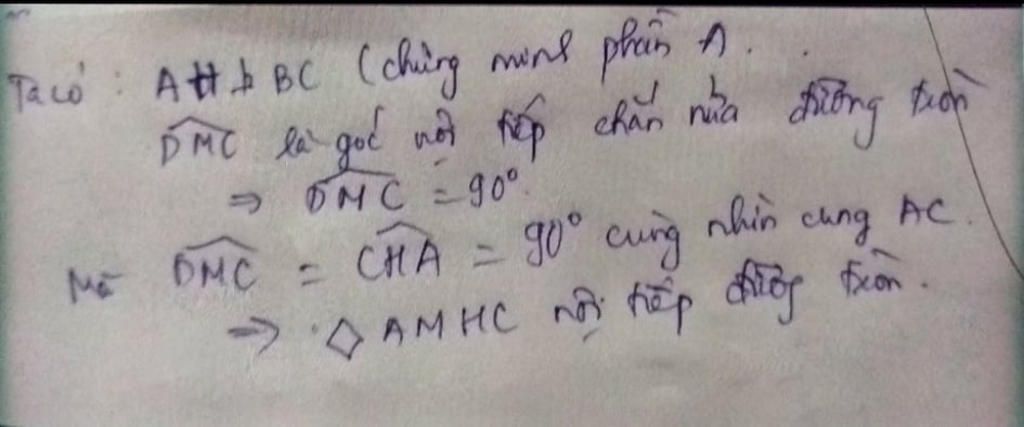 Ta có : AH ⊥ BC (chứng minh phần A.
DMC là góc nội tiếp chắn nửa đường tròn
⇒ DMC = 90°.
Mà DMC = CHA = 90° cùng nhìn cung AC.
⇒ ◇ AMHC nội tiếp đường tròn.